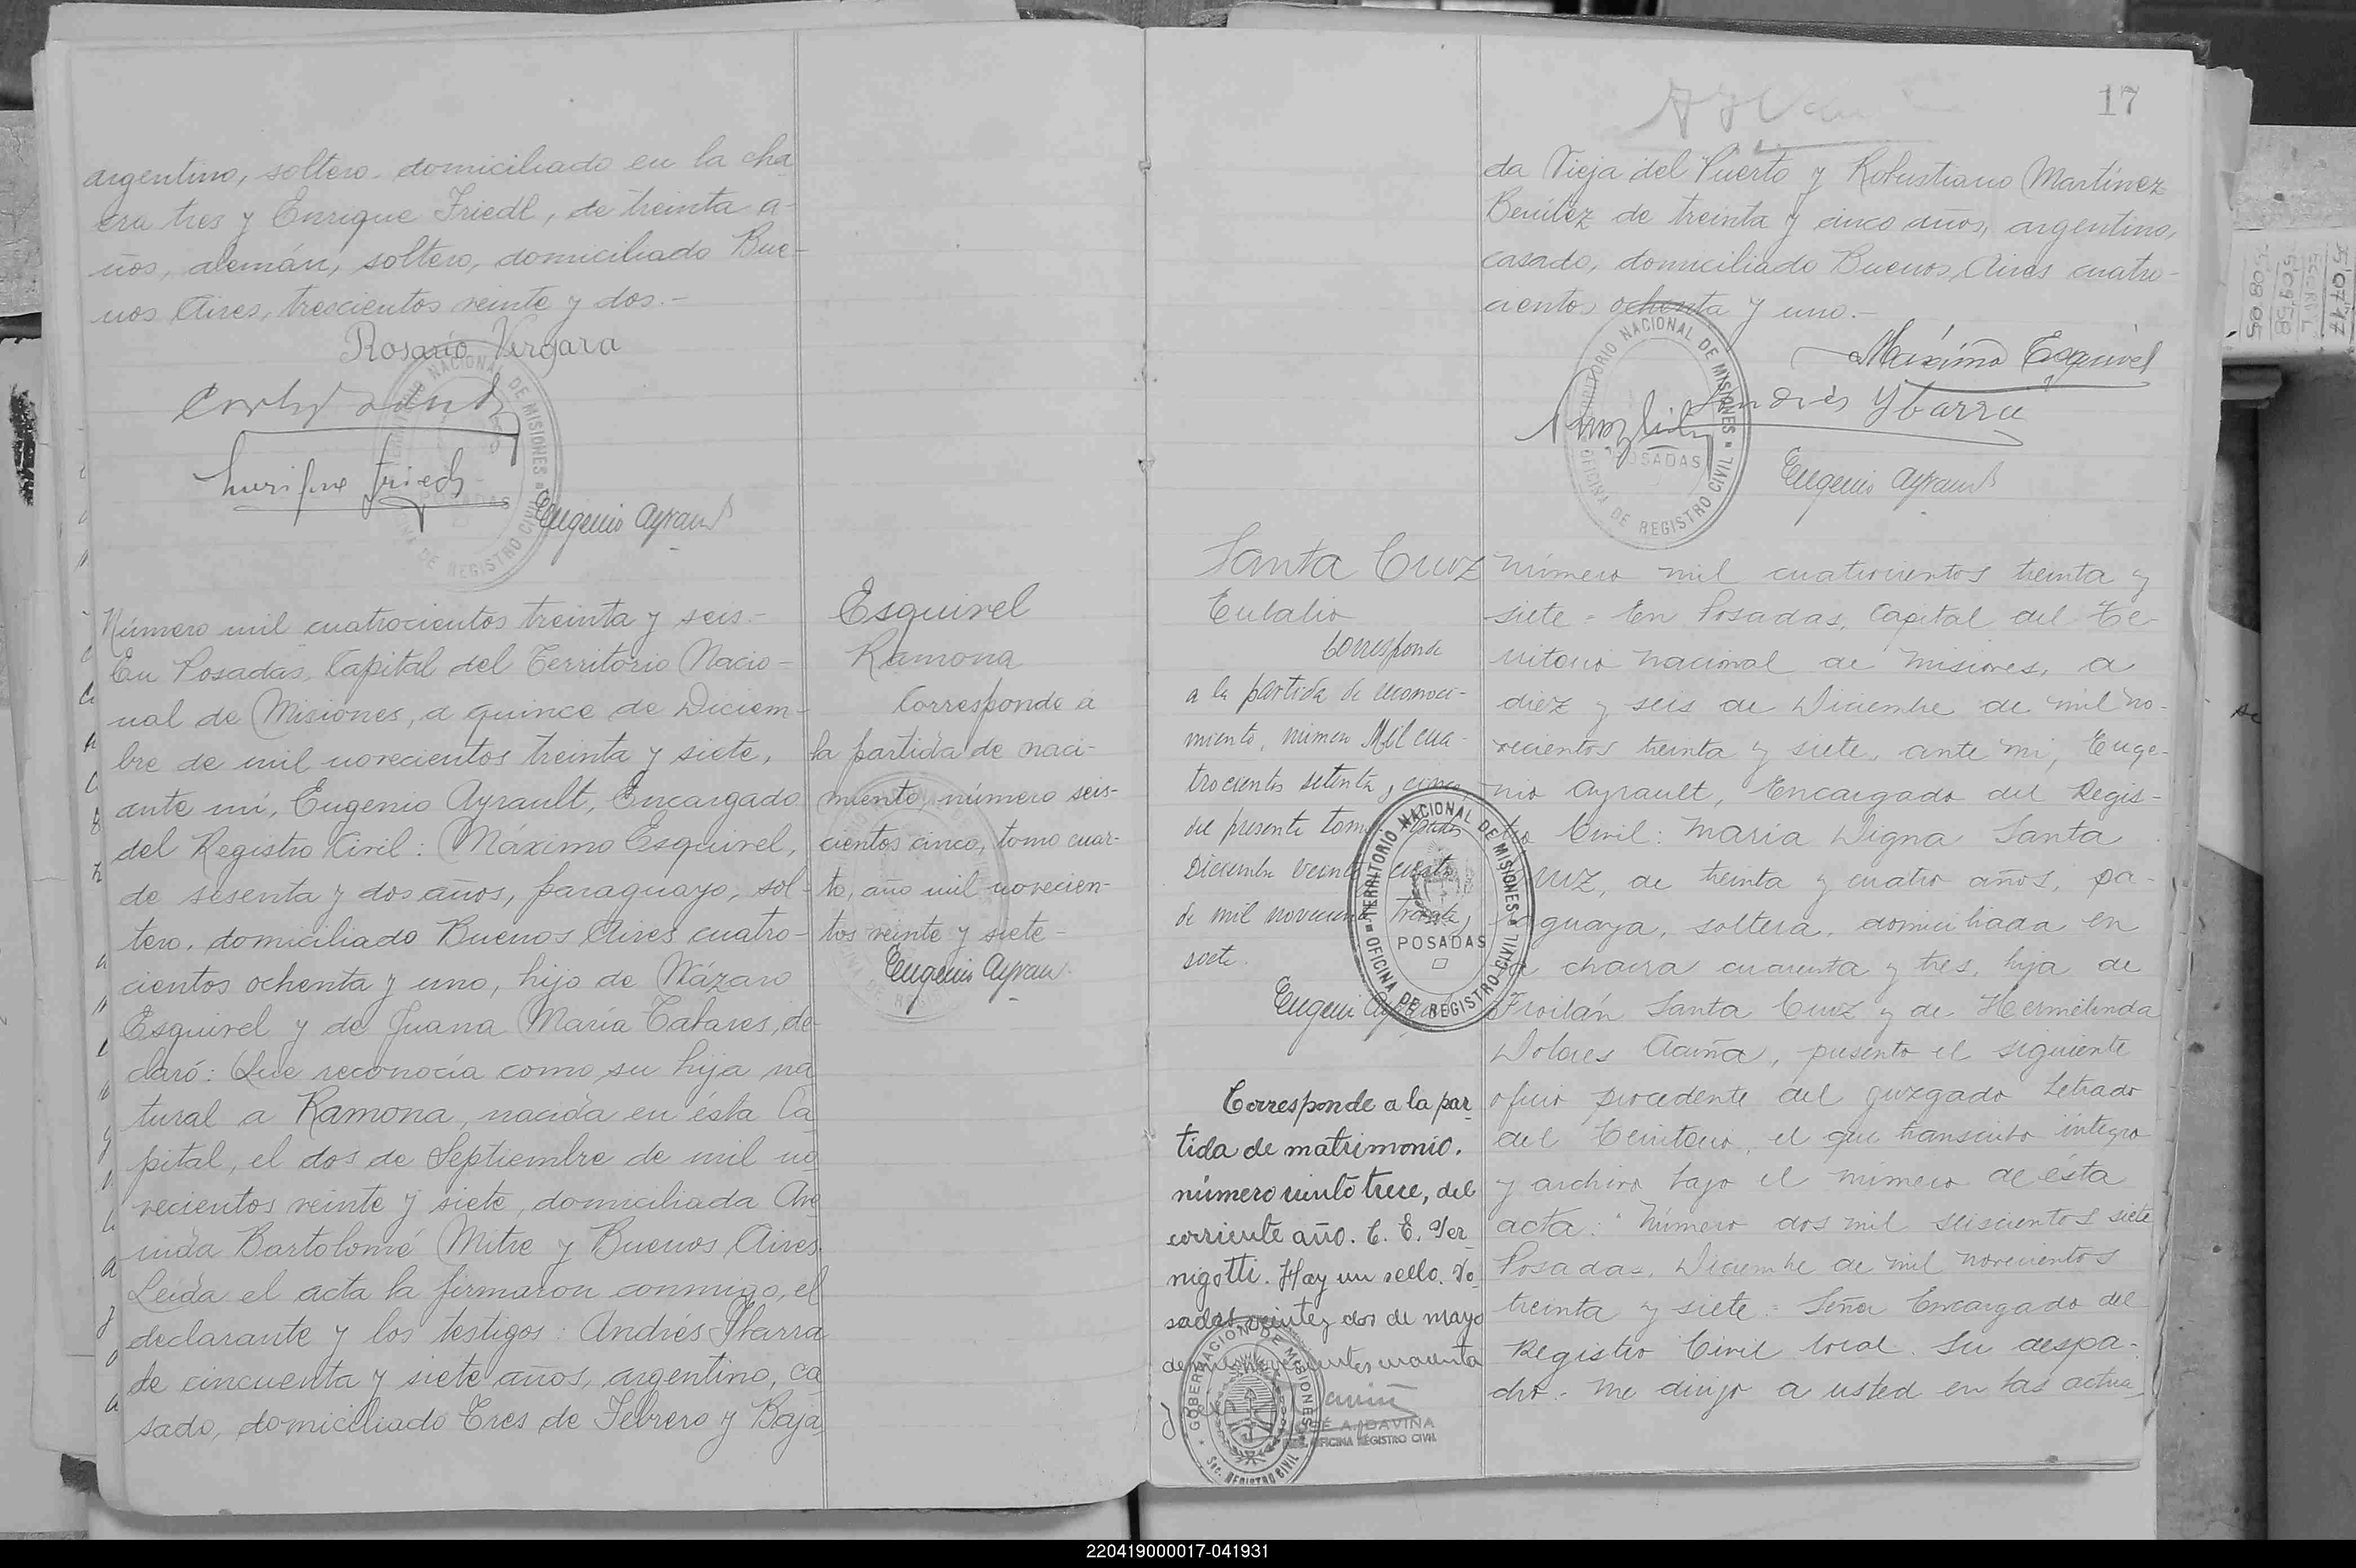 argentino, soltero. domiciliado en la cha
cra tres y Enrique Friedl, de treinta a-
ños, alemán, soltero, domiciliado Bue-
nos Aires, trescientos veinte y dos.-
Rosario Vergara
Enrique Friedl
Eugenio Ayrault
Número mil cuatrocientos treinta y seis.-
En Posadas, Capital del Territorio Nacio-
nal de Misiones, a quince de Diciem-
bre de mil novecientos treinta y siete,
ante mí, Eugenio Ayrault, Encargado
del Registro Civil: Máximo Esquivel,
de sesenta y dos años, paraguayo, sol-
tero, domiciliado Buenos Aires cuatro-
cientos ochenta y uno, hijo de Názaro
Esquivel y de Juana María Tabares, de-
claró: Que reconocía como su hija na
tural a Ramona, nacida en ésta Ca
pital, el dos de Septiembre de mil no
vecientos veinte y siete, domiciliada Ave
nida Bartolomé Mitre y Buenos Aires.
Leída el acta la firmaron conmigo, el
declarante y los testigos: Andrés Ibarra
de cincuenta y siete años, argentino, ca
sado, domiciliado Tres de Febrero y Baja
Esquivel
Ramona
Corresponde a
la partida de naci-
miento, número seis-
cientos cinco, tomo cuar-
to, año mil novecien-
tos veinte y siete-
Eugenio Ayrault
17
da Vieja del Puerto y Robustiano Martínez
Benítez de treinta y cinco años, argentino,
casado, domiciliado Buenos Aires cuatro-
cientos ochenta y uno.-
Máximo Esquivel
Andrés Ybarra
Eugenio Ayrault
TERRITORIO NACIONAL DE MISIONES
POSADAS
OFICINA DE REGISTRO CIVIL
Santa Cruz
Eulalio
Corresponde
a la partida de reconoci-
miento, número Mil cua-
trocientos setenta y cinco,
del presente tomo. Posadas
Diciembre veinte cuatro
de mil novecientos treinta y
siete.
Eugenio Ayrault
TERRITORIO NACIONAL DE MISIONES
POSADAS
OFICINA DE REGISTRO CIVIL
Corresponde a la par
tida de matrimonio.
número ciento trece, del
corriente año. C. E. Ver
nigotti. Hay un sello. Po
sadas veinte y dos de mayo
de mil novecientos cuarenta
GOBERNACION DE MISIONES
Sec. REGISTRO CIVIL
JOSÉ A. DAVIÑA
OFICINA REGISTRO CIVIL
Número mil cuatrocientos treinta y
siete = En Posadas, Capital del Te-
rritorio Nacional de Misiones, a
diez y seis de Diciembre de mil no-
vecientos treinta y siete, ante mí, Euge-
nio Ayrault, Encargado del Regis-
tro Civil: María Digna Santa
Cruz, de treinta y cuatro años, pa-
raguaya, soltera, domiciliada en
la chacra cuarenta y tres, hija de
Froilán Santa Cruz y de Hermelinda
Dolores Acuña, presento el siguiente
oficio procedente del Juzgado Letrado
del Territorio, el que transcribo íntegro
y archivo bajo el número de ésta
acta: "Número dos mil seiscientos siete
Posadas, Diciembre de mil novecientos
treinta y siete = Señor Encargado del
Registro Civil local. Su despa-
cho = Me dirijo a usted en las actua
220419000017-041931